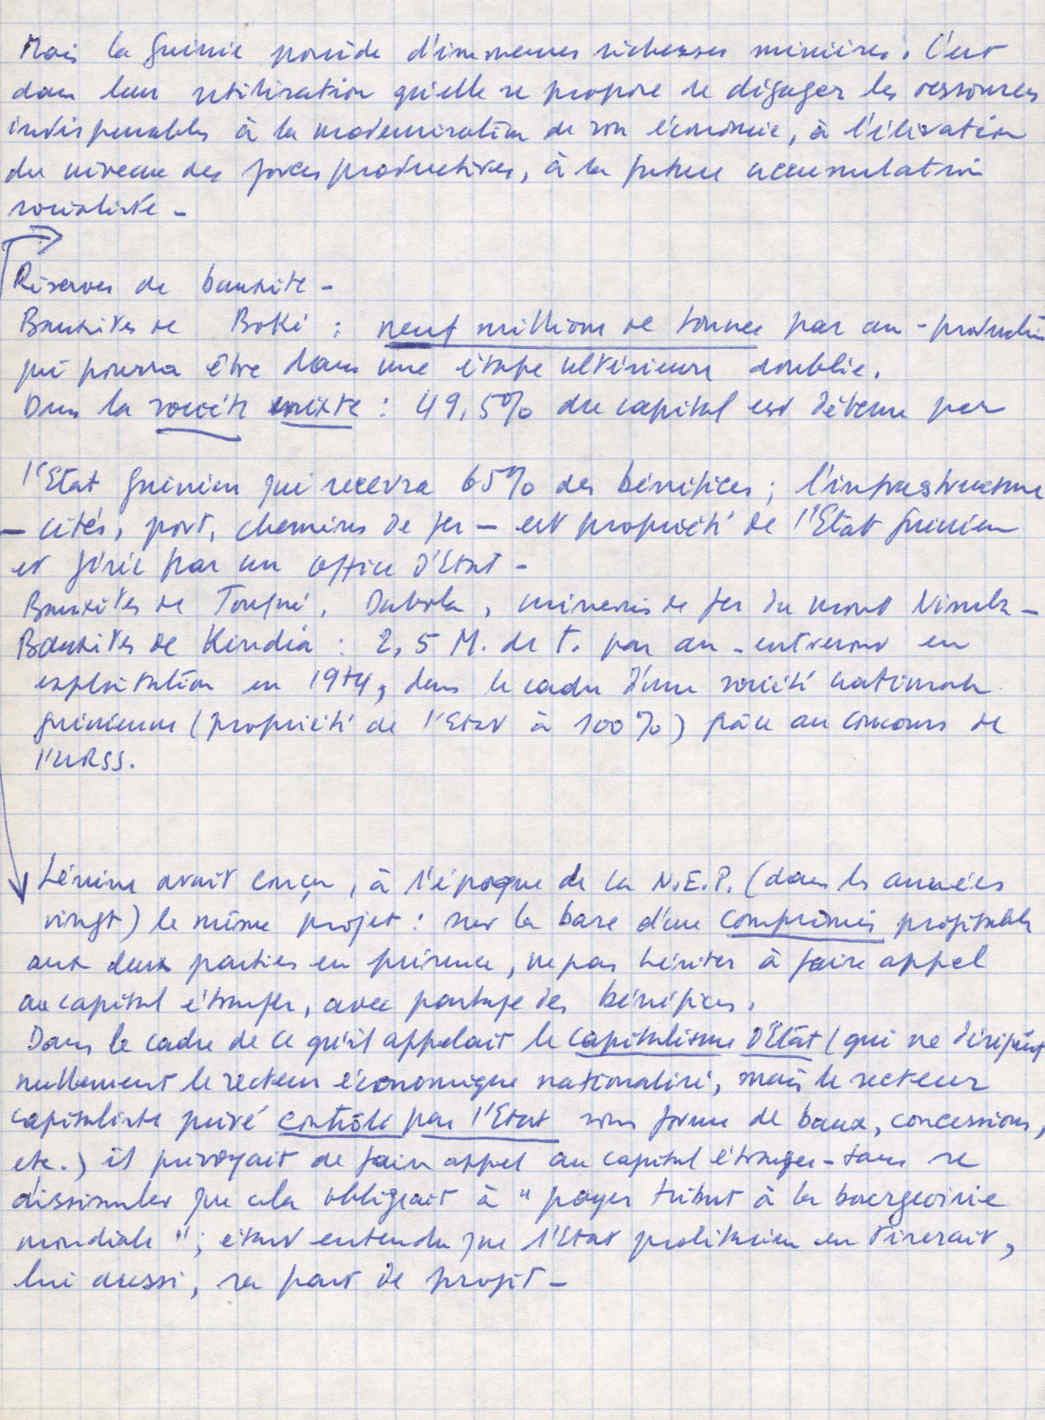 Mais la Guinée possède d'immenses richesses minières. C'est
dans leur utilisation qu'elle se propose de dégager les ressources
indispensables à la modernisation de son économie, à l'élévation
du niveau des forces productives, à la future accumulation
socialiste -
Réserves de bauxite -
Bauxites de Boké : neuf millions de tonnes par an - production
qui pourra être dans une étape ultérieure doublée.
Dans la société mixte : 49,5% du capital est détenu par
l'Etat guinéen qui recevra 65% des bénéfices ; l'infrastructure
- cités, port, chemins de fer - est propriété de l'Etat guinéen
et gérée par un office d'Etat -
Bauxites de Tougué, Dabola, minerais de fer du mont Nimba -
Bauxites de Kindia : 2,5 M. de t. par an - entreront en
exploitation en 1974, dans le cadre d'une société nationale
guinéenne (propriété de l'Etat à 100%) grâce au concours de
l'URSS.
Lénine avait conçu, à l'époque de la N.E.P. (dans les années
vingt) le même projet : sur la base d'un compromis profitable
aux deux parties en présence, ne pas hésiter à faire appel
au capital étranger, avec partage des bénéfices.
Dans le cadre de ce qu'il appelait le capitalisme d'Etat (qui ne désignait
nullement le secteur économique nationalisé, mais le secteur
capitaliste privé contrôlé par l'Etat sous forme de baux, concessions,
etc.) il prévoyait de faire appel au capital étranger - sans se
dissimuler que cela obligeait à "payer tribut à la bourgeoisie
mondiale" ; étant entendu que l'Etat prolétarien en tirerait,
lui aussi, sa part de profit -